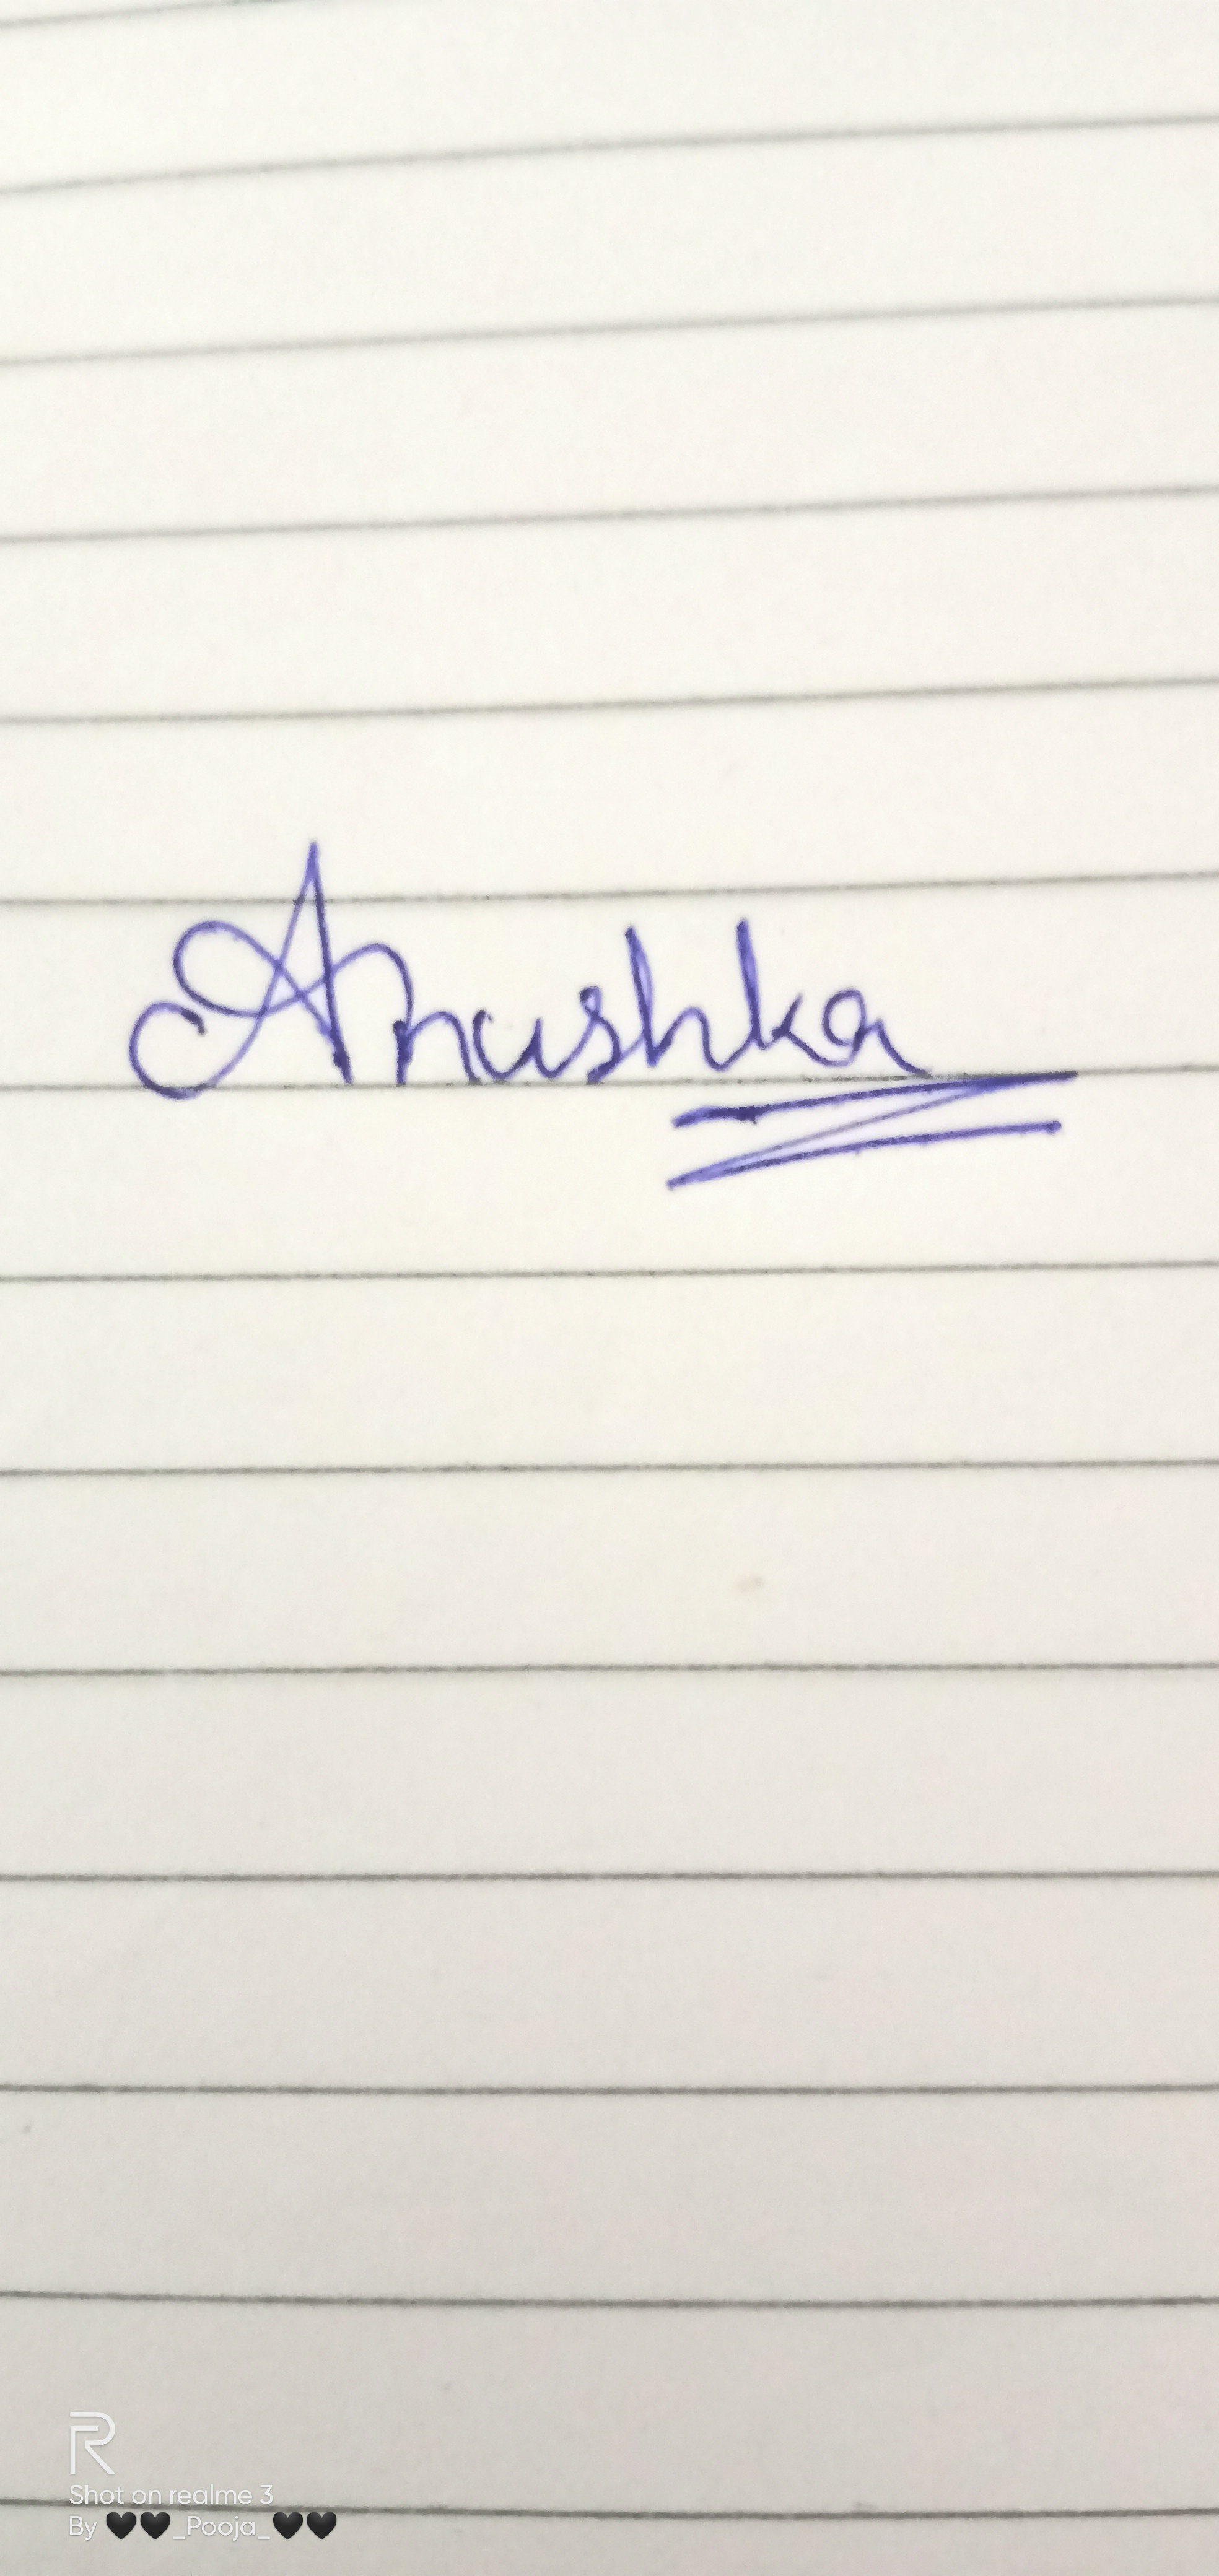 Anushka
R
Shot on realme 3
By 🖤🖤_Pooja_🖤🖤